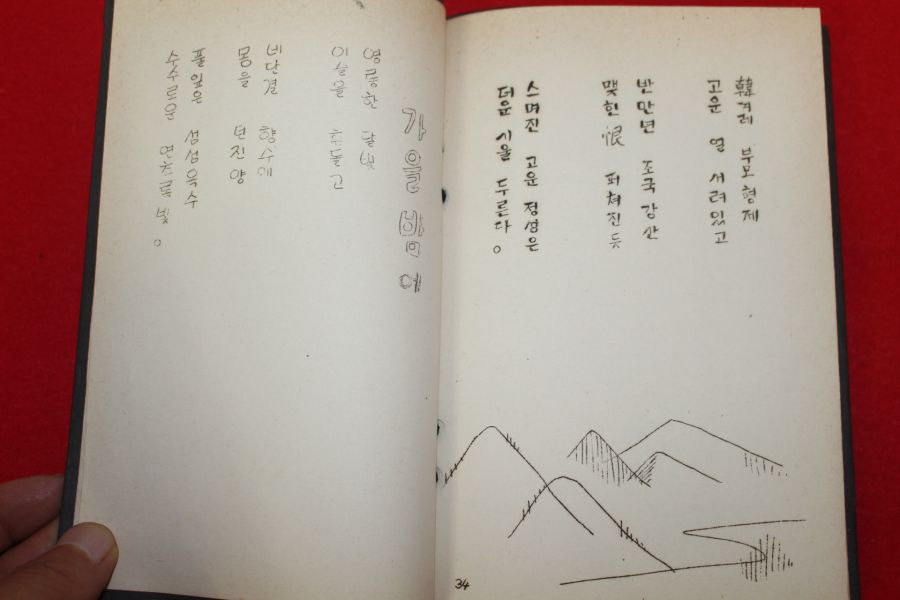 韓겨레 부모형제
고운 얼 서려있고
반만년 조국강산
맺힌 恨 퍼쳐진듯
스며진 고운 정성은
더운 시울 두른다。
34
가을밤에
영롱한 달빛
이슬을
비단결 향수에
몸을 던진양
풀잎은 섬섬옥수
수수로운 연초록빛。